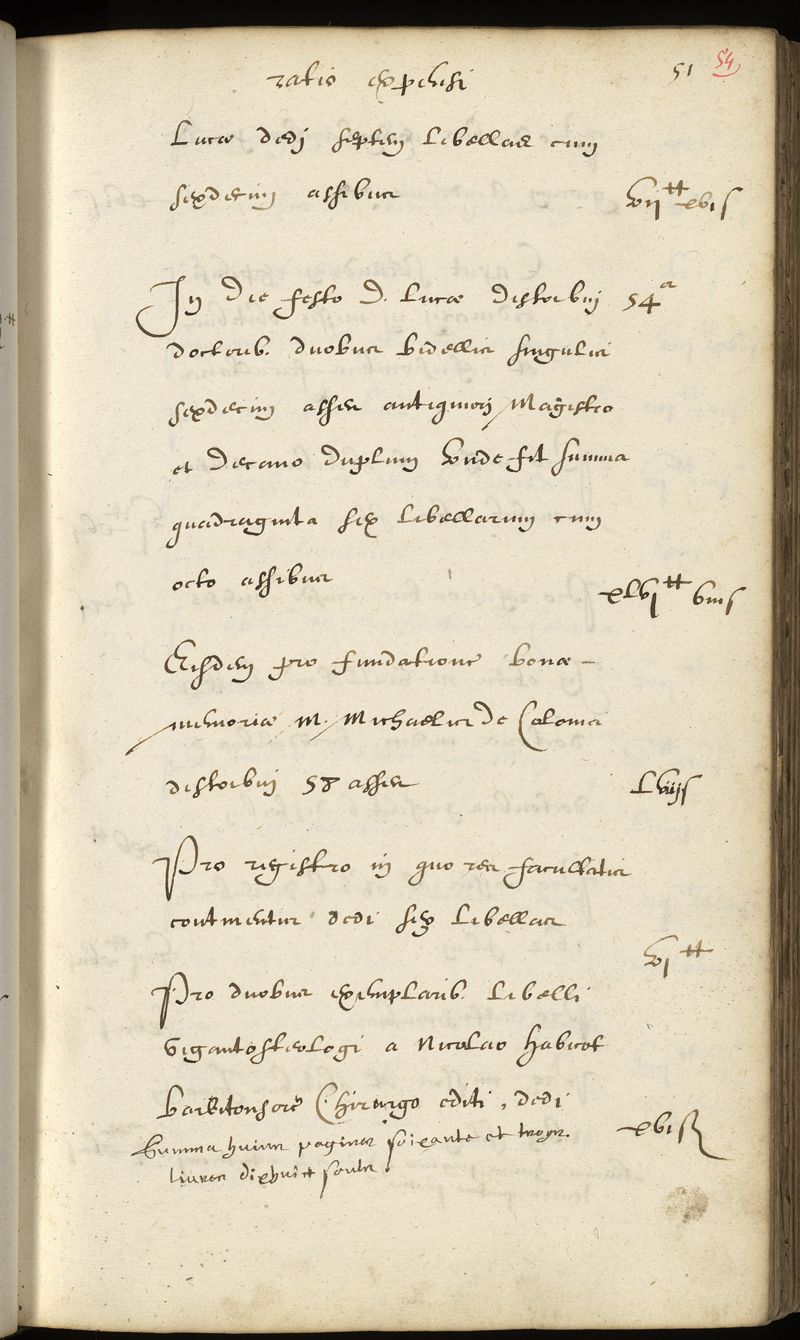 51 54
ratio expensi
Lucæ dedj septem libellas cum
sexdecim assibus vij tt xvi s
In die festo D. Lucæ distribuj 54 a
doctorib. duobus bidellis singulis
sexdecim asses antiquiorj Magistro
et Decano duplum Unde fit summa
quadraginta sex libellarum cum
octo assibus xlvj tt viii s
Eisdem pro fundatione bonæ
memoriæ M. Michaelis De Coloma
distribuj 58 asses Lviij s
Pro registro in quo res facultatis
continentur dedi sex libellas
vj tt
Pro duobus exemplarib. libelli
Gigantosteologi a Nicolao habicot
barbitonsore Chirurgo editi, dedi
xvi s
Summa huius paginæ soixante et treze
livres dixhuict soulz